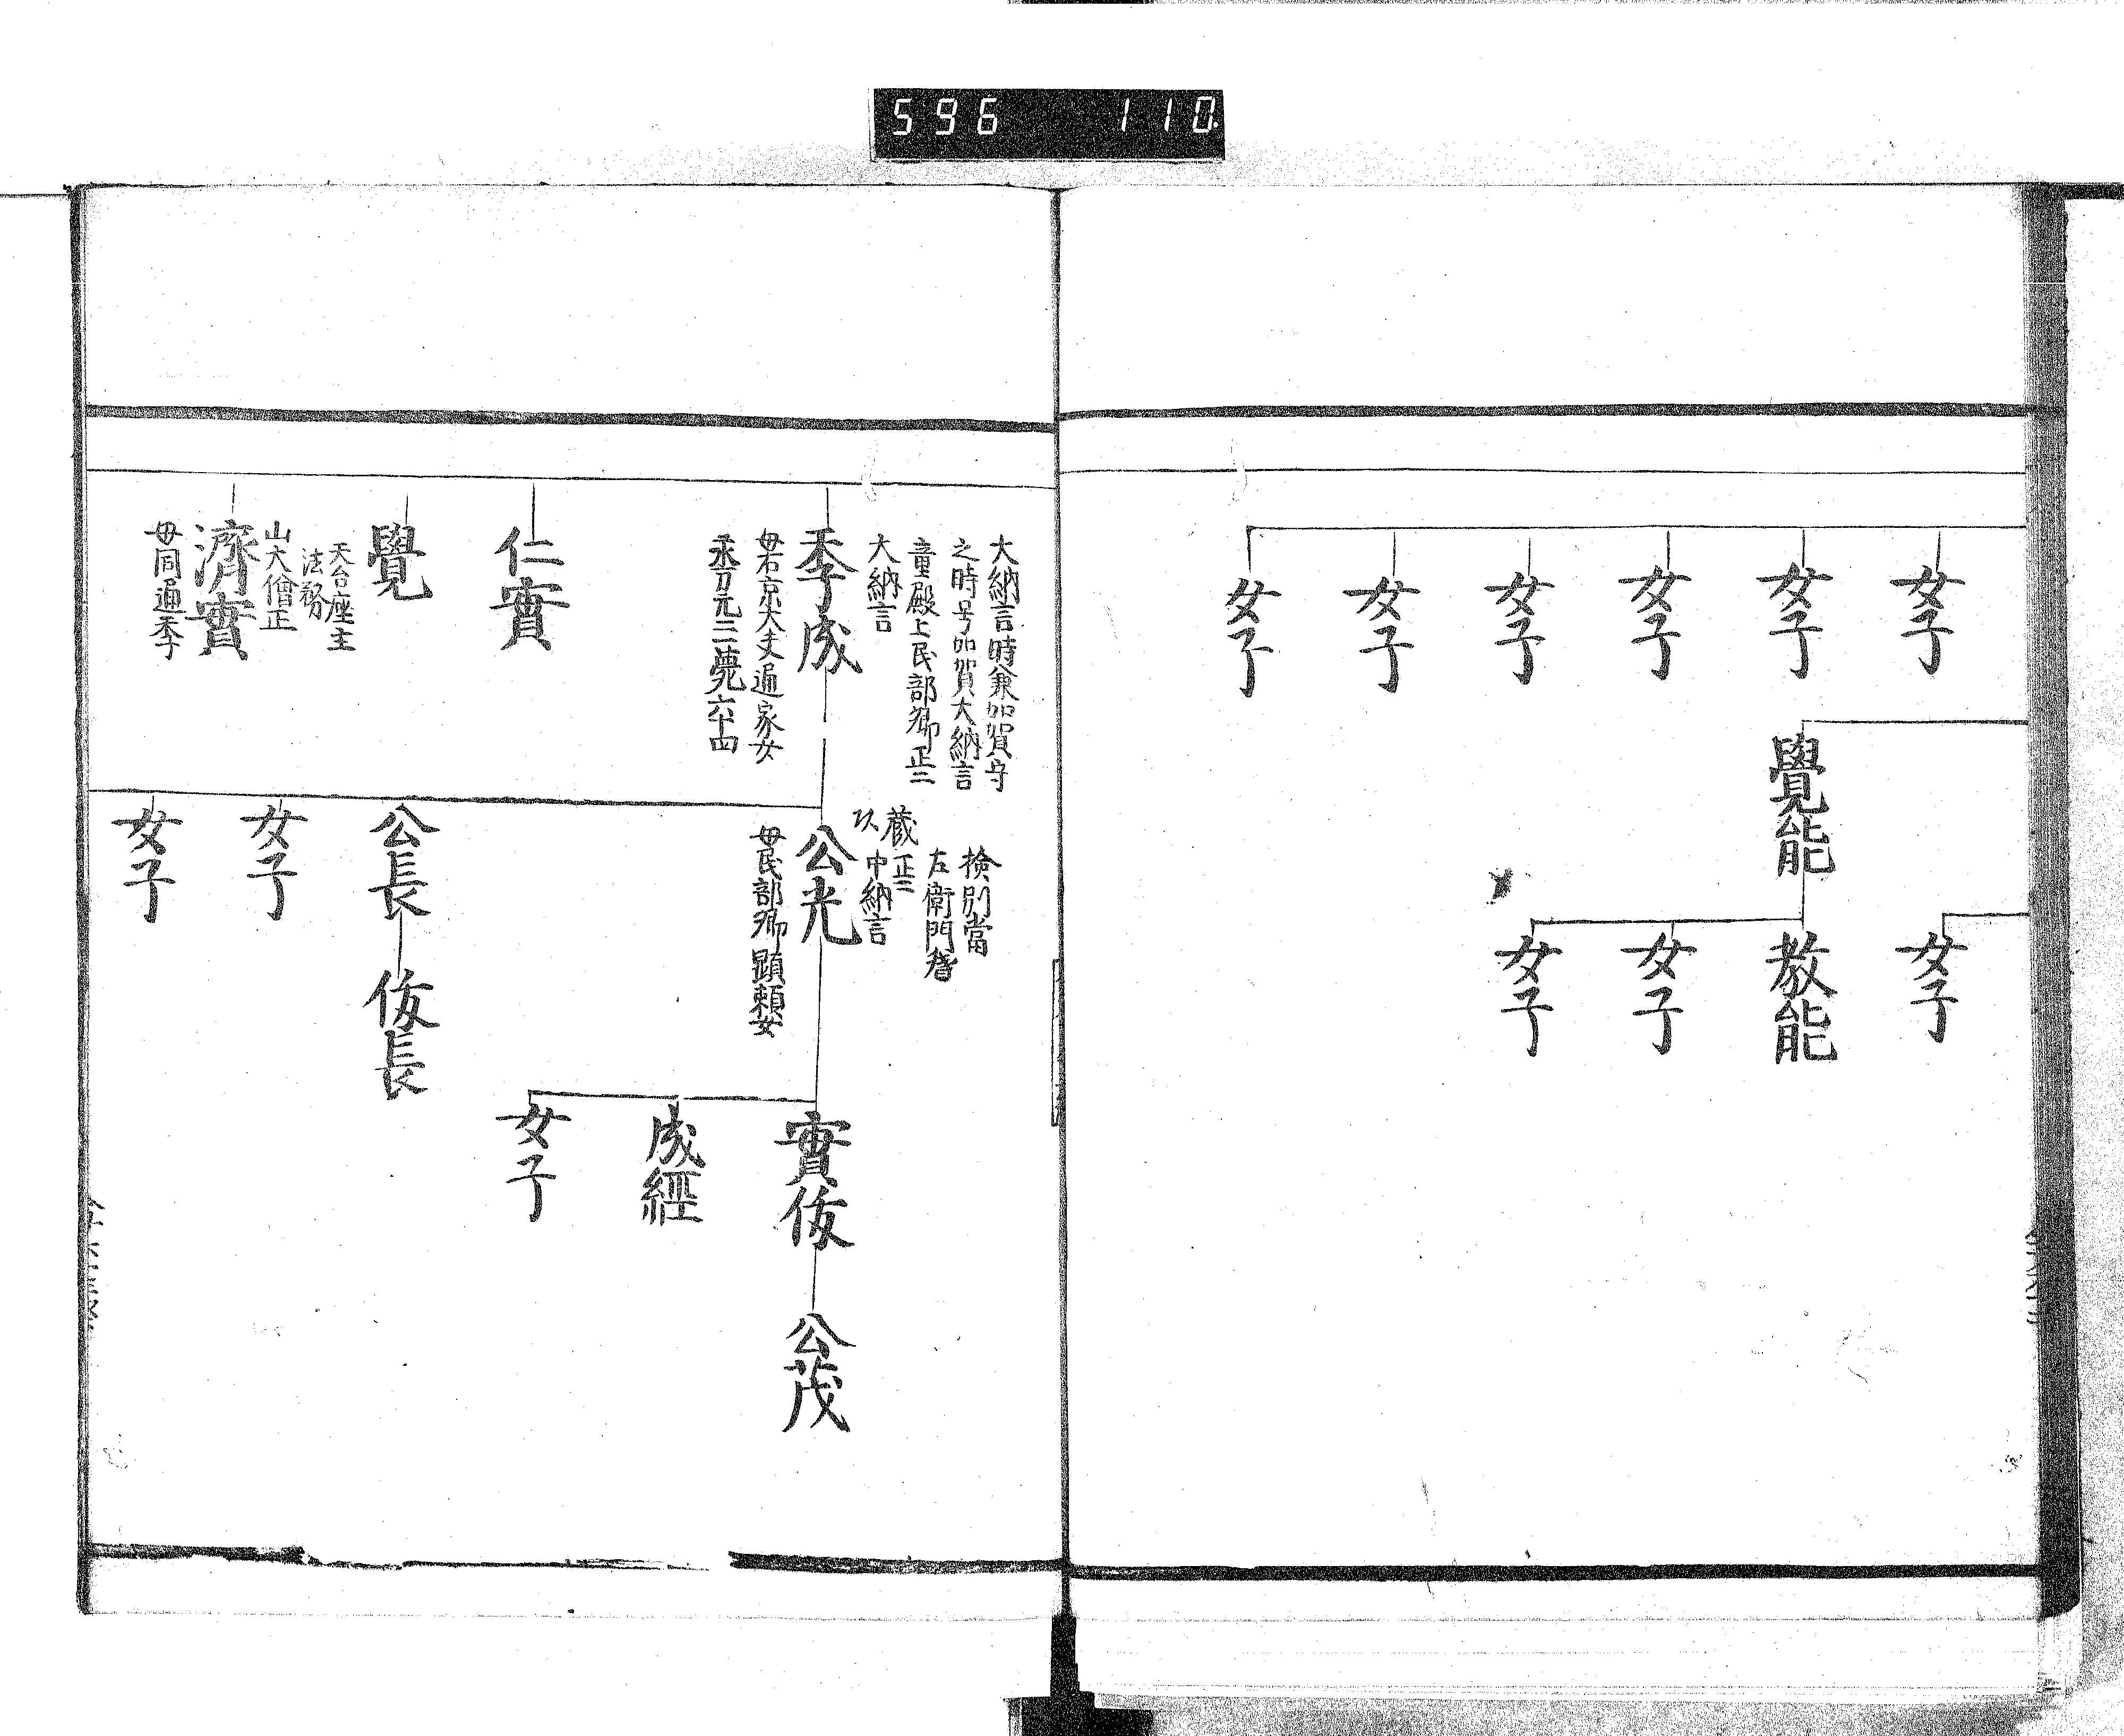 596 110
女子
女子
女子
女子
女子
女子
覺能
女子
教能
女子
女子
大納言時兼加賀守
之時号加賀大納言
童殿上民部卿正二
大納言
季成
母右京大夫通家女
永万元二薨六十四
検別當
左衛門督
蔵正二
中納言
公光
母民部卿顕頼女
實俊
公茂
成經
女子
仁實
覺
天台座主
法務
山大僧正
濟實
母同通季
公長
俊長
女子
女子